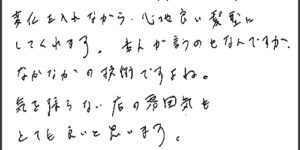 変化を入れながら、心地良い髪型に
してくれます。本人が言うのもなんですが、
なかなかの技術ですよね。
気を張らない店の雰囲気も
とても良いと思います。